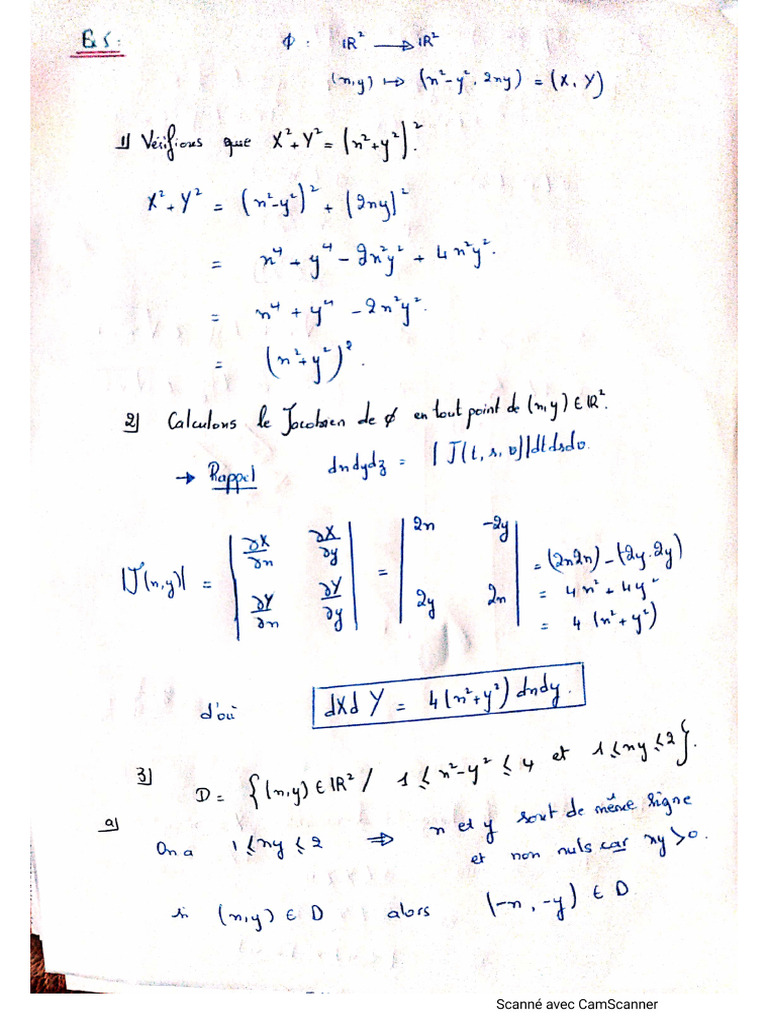 Ex 5:
ϕ : IR² → IR²
(x,y) ↦ (x²-y², 2xy) = (X, Y)
1) Vérifions que X²+Y² = (x²+y²)².
X²+Y² = (x²-y²)² + (2xy)²
= x⁴ + y⁴ - 2x²y² + 4x²y².
= x⁴ + y⁴ - 2x²y².
= (x²+y²)².
2) Calculons le Jacobien de ϕ en tout point de (x,y) ∈ IR².
→ Rappel dxdydz = |J(t,s,v)|dtdsdv.
|J(x,y)| = | ∂X/∂x ∂X/∂y ; ∂Y/∂x ∂Y/∂y | = | 2x -2y ; 2y 2x | = (2x2x) - (-2y.2y)
= 4x² + 4y²
= 4 (x²+y²)
d'où dXdY = 4(x²+y²) dxdy.
3) D = {(x,y) ∈ IR² / 1 ≤ x²-y² ≤ 4 et 1 ≤ xy ≤ 2}.
a) On a 1 ≤ xy ≤ 2 ⇒ x et y sont de même signe
et non nuls car xy > 0.
si (x,y) ∈ D alors (-x, -y) ∈ D
Scanné avec CamScanner